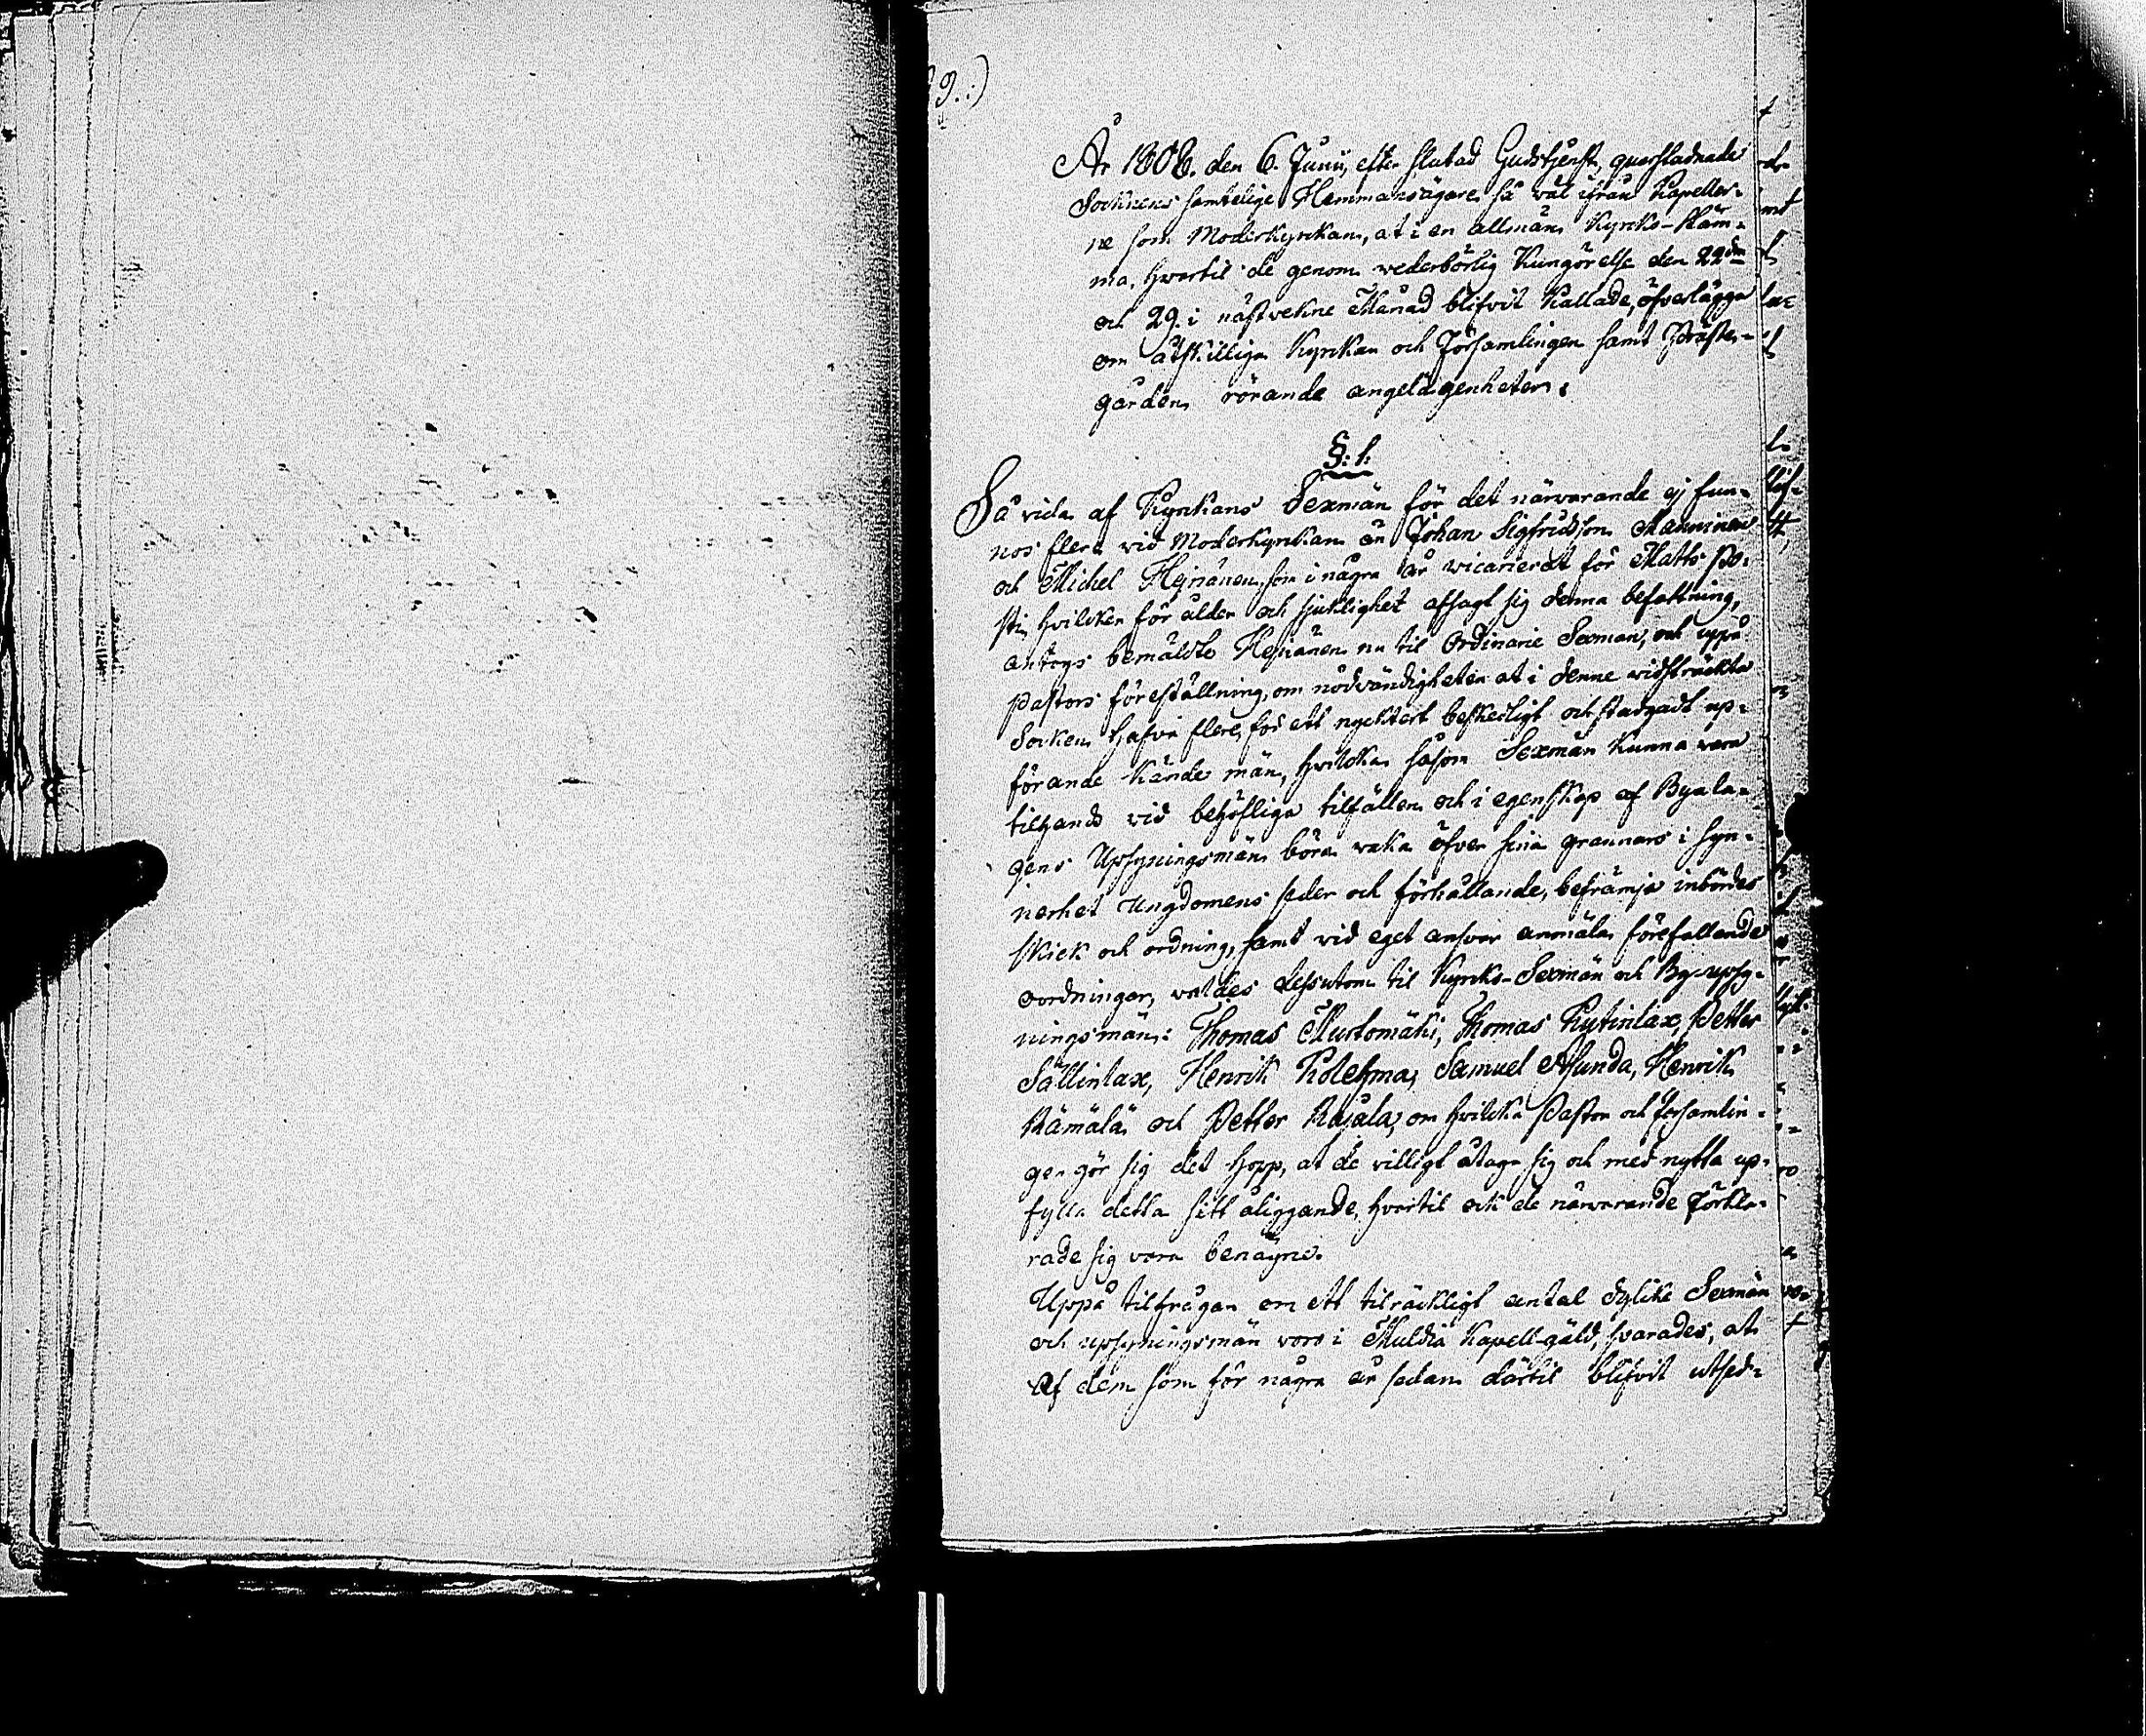 9.:)
År 1808. den 6. Junii, efter slutad Gudstjenst, quarstadnade
Socknens samtelige Hemmansägare så väl ifrån Kapeller-
ne som Moderkyrkan, at i en allmän Kyrko-stäm-
ma, hvartil de genom vederbörlig Kungörelse den 22dn
och 29. i nästvekne Månad blifvit kallade, öfverlägga
om åtskilliga Kyrkan och Församlingen samt Präste-
gården rörande angelägenheter.
§: 1:
Så vida af Kyrkans Sexmän för det närvarande ej fun-
nos flera vid Moderkyrkan än Johan Sigfridsson Manninen
och Michel Hejnänen, som i några år vicarierat för Matts Po-
sti, hvilcken för ålder och sjuklighet afsagt sig denna befattning,
antogs bemälde Hejnänen nu til Ordinarie Sexman, och uppå
Pastors föreställning, om nödvändigheten at i denne vidsträckta
Socken hafva flere, för ett nycktert beskedligt och stadgadt up-
förande kände män, hvilcka såsom Sexmän kunna vara
tilhands vid behöfliga tilfällen och i egenskap af Byala-
gens Upsyningsmän böra vaka öfver sina grannars i syn-
nerhet Ungdomens seder och förhållande, befrämja inbördes
skick och ordning, samt vid eget ansvar anmäla förefallande
oordningar, valdes dessutom til Kyrko-Sexmän och By-upsy-
ningsmän: Thomas Mustomäki, Thomas Kutinlax, Petter
Sällinlax, Henrik Kolehma, Samuel Asunda, Henrik
Kämälä och Petter Rajala, om hvilcka Pastor och Församlin-
gen gör sig det hopp, at de villigt åtaga sig och med nytta up-
fylla detta sitt åliggande, hvartil ock de närvarande förkla-
rade sig vara benägne.
Uppå tilfrågan om ett tilräckligt antal dylike Sexmän
och upsyningsmän voro i Muldia Kapell-gäld, svarades, at
af dem som för några år sedan därtil blifvit utsed-